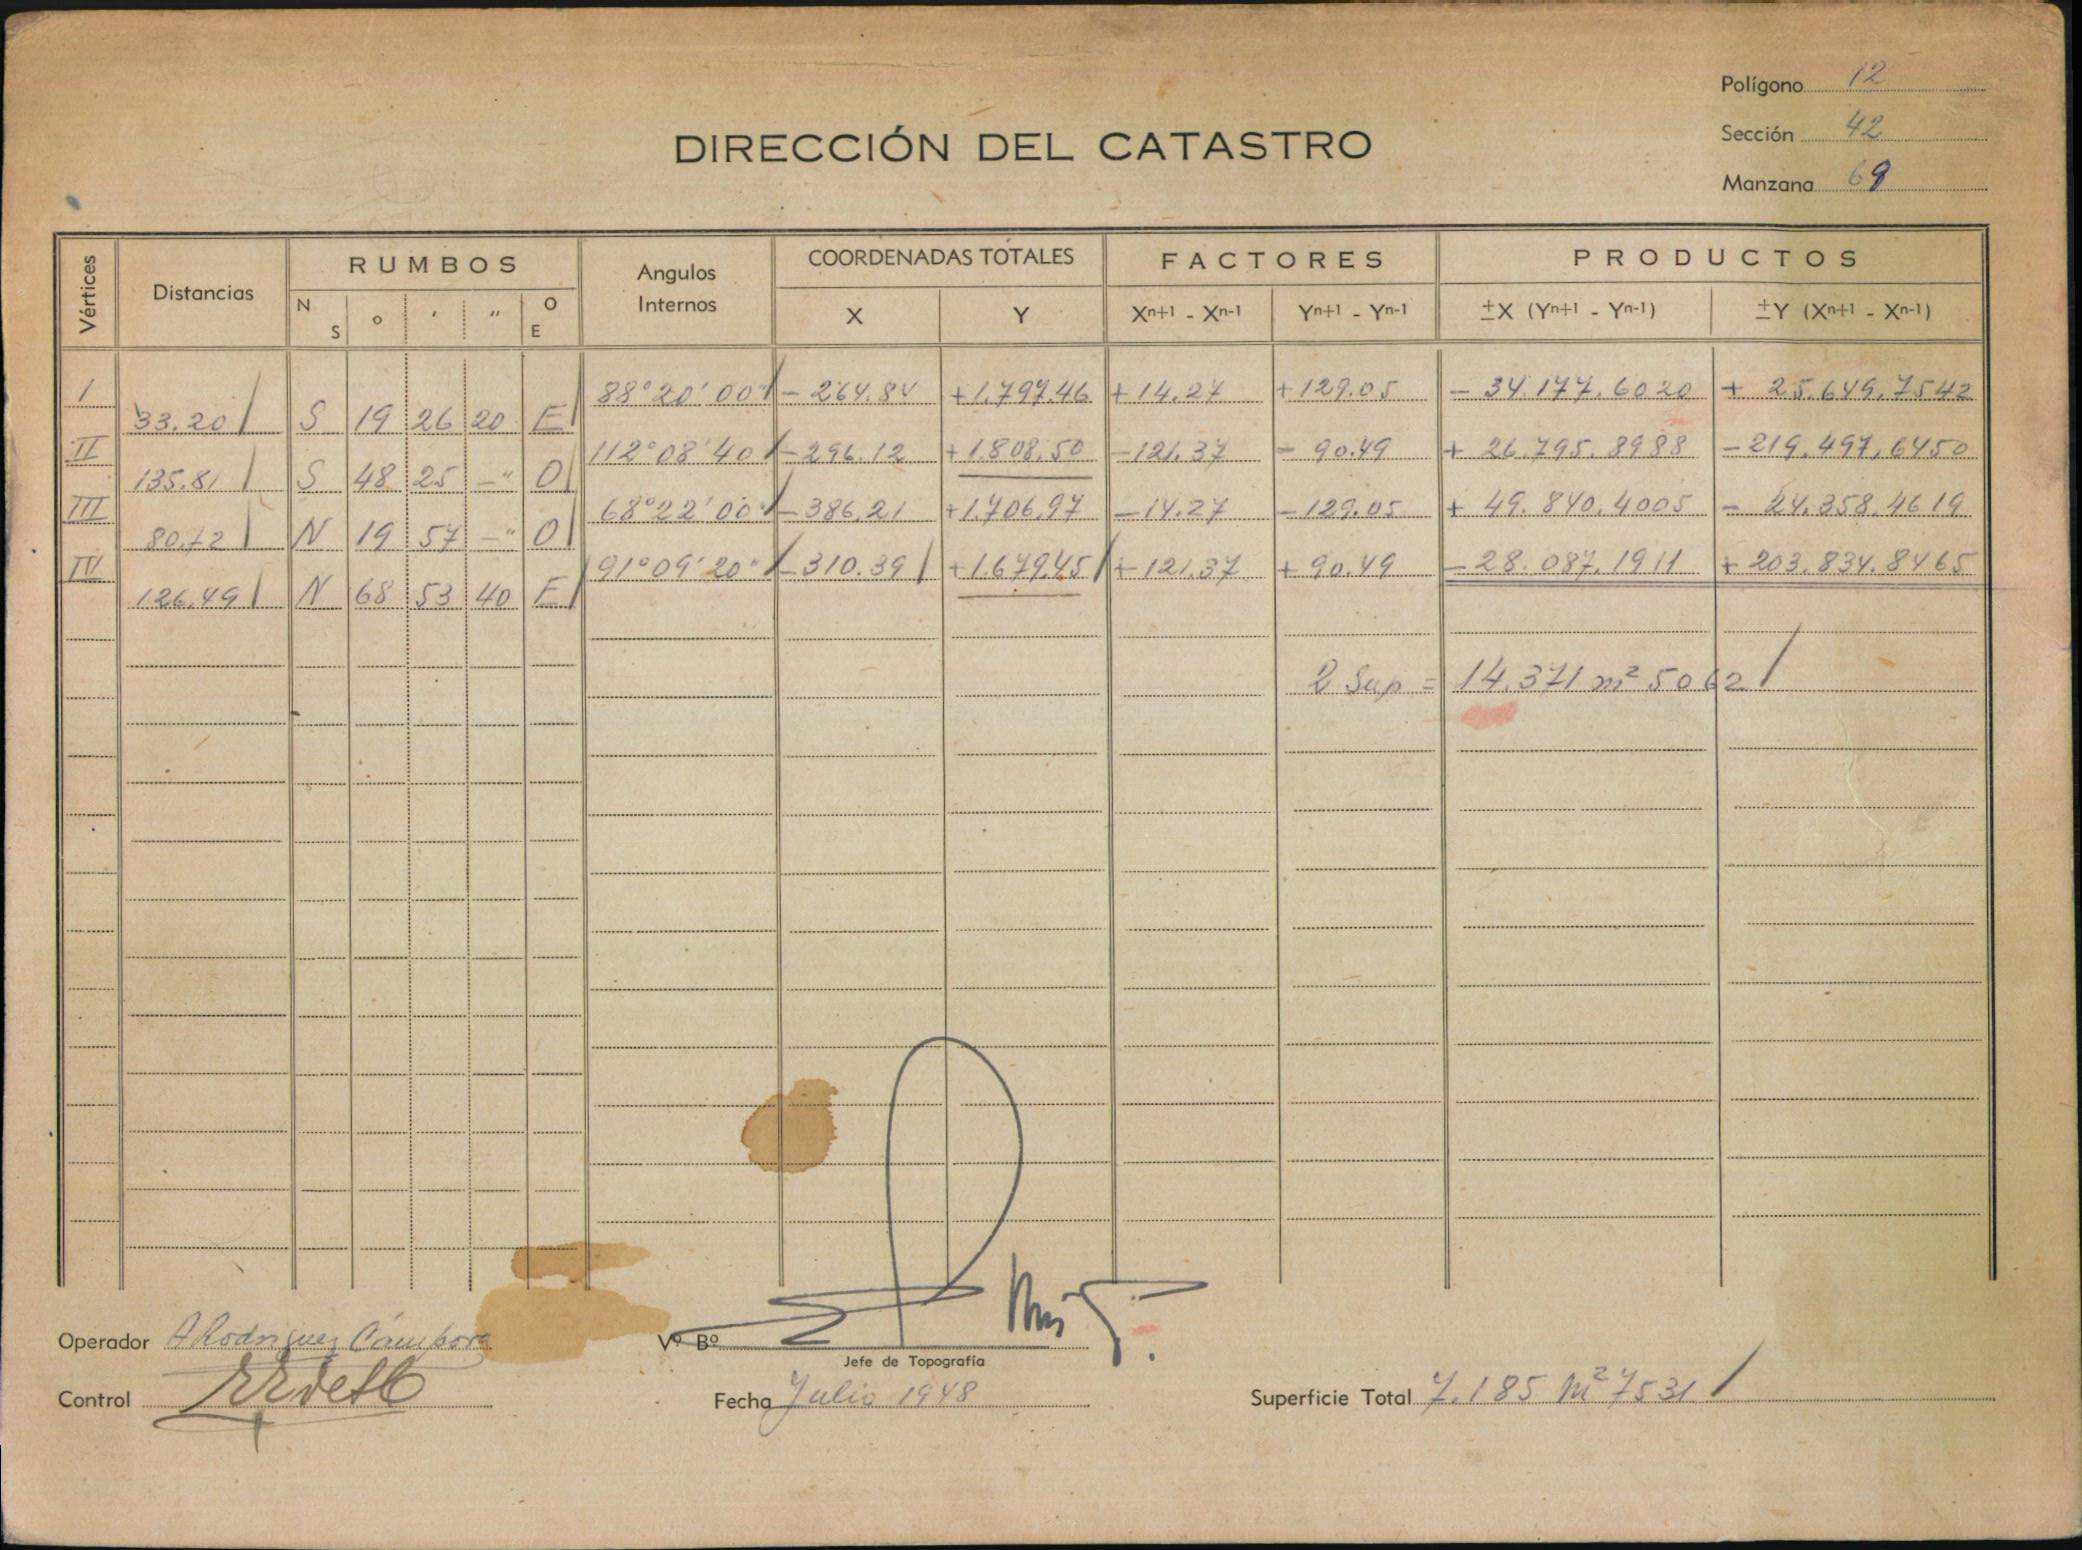 Polígono 12
DIRECCIÓN DEL CATASTRO
Sección 42
Manzana 69
Vértices Distancias RUMBOS Angulos Internos COORDENADAS TOTALES FACTORES PRODUCTOS
N S ° ' " O E X Y Xn+1 - Xn-1 Yn+1 - Yn-1 ±X (Yn+1 - Yn-1) ±Y (Xn+1 - Xn-1)
I 88°20'00" - 264.84 +1.797.46 +14.27 +129.05 - 34.177.6020 + 25.649.7542
33.20 S 19 26 20 E
II 112°08'40 -296.12 +1.808.50 -121.37 - 90.49 + 26.795.8988 -219.497.6450
135.81 S 48 25 -" O
III 68°22'00" -386.21 +1.706.97 -14.27 -129.05 + 49.840.4005 - 24.358.4619
80.72 N 19 57 -" O
IV 91°09'20" -310.39 +1.679.45 +121.37 +90.49 -28.087.1911 +203.834.8465
126.49 N 68 53 40 E
2 Sup = 14.371 m² 5062
Operador A Rodriguez Cámpora
Vº Bº
Jefe de Topografía
Control
Fecha Julio 1948
Superficie Total 7.185 m² 7531